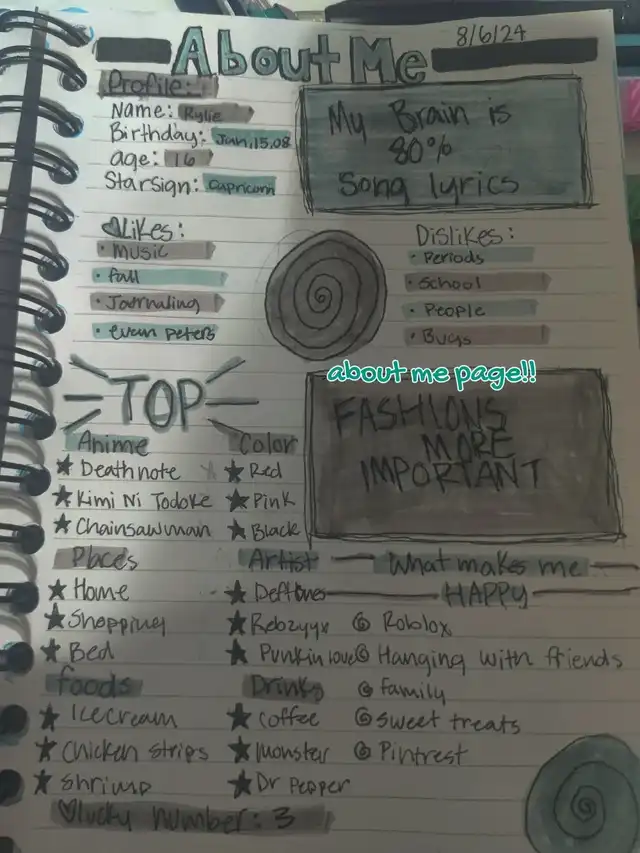 8/6/24
About Me
Profile:
Name: Rylie
Birthday: Jan,15,08
age: 16
Starsign: Capricorn
My Brain is
80%
Song lyrics
Likes:
• Music
• fall
• Journaling
• evan peters
Dislikes:
• Periods
• School
• People
• Bugs
about me page!!
TOP
FASHIONS
MORE
IMPORTANT
Anime
Deathnote
Kimi Ni Todoke
Chainsawman
Color
Red
Pink
Black
Places
Home
Shopping
Bed
Artist
Deftones
Rebzyyx
Punkinloue
What makes me
HAPPY
Roblox
Hanging with friends
family
sweet treats
Pintrest
foods
Icecream
Chicken strips
Shrimp
Drinks
Coffee
Monster
Dr Pepper
lucky number: 3